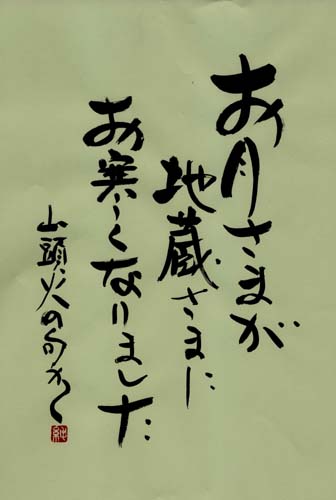 お月さまが
地蔵さまに
お寒くなりました
山頭火の句かく